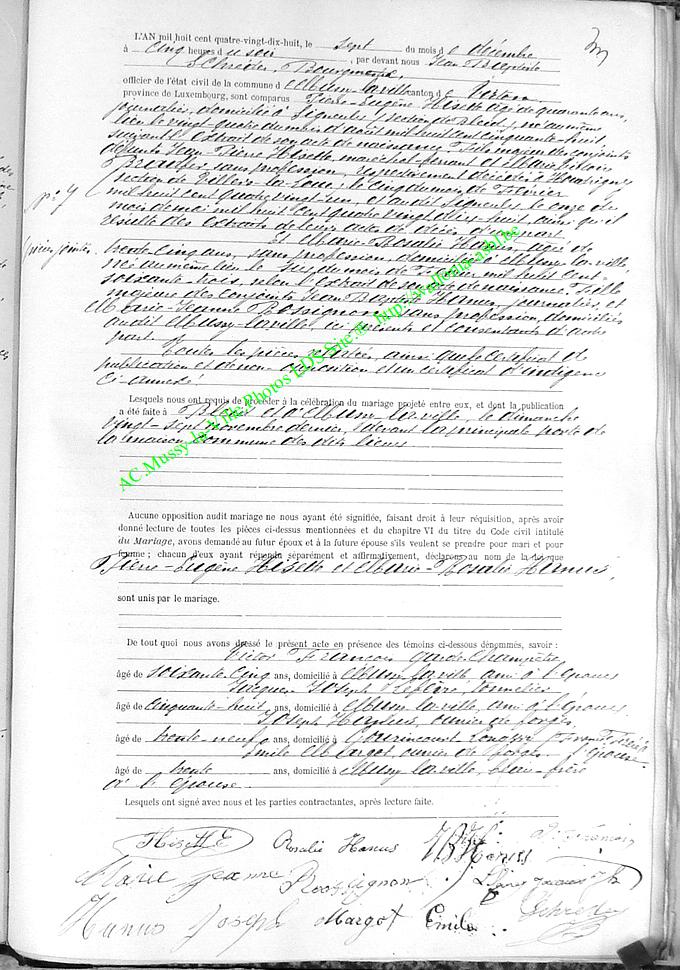 L'AN mil huit cent quatre-vingt-dix-huit, le sept du mois de décembre
à cinq heures du soir, par devant nous Jean Baptiste
Schreder, Bourgmestre,
officier de l'état civil de la commune de Mussy-la-ville canton de Virton
province de Luxembourg, sont comparus Pierre-Eugène Hisette âgé de quarante ans,
journalier, domicilié à Signeulx (section de ), né au même
lieu le vingt-quatre du mois d'août mil huit cent cinquante-huit,
suivant l'extrait de son acte de naissance, fils majeur des conjoints
défunts Jean-Pierre Hisette, maréchal-ferrant et Marie
sans profession, respectivement décédés à
section de Villers-la-Loue, le cinq du mois de Février
mil huit cent quatre vingt-un, et audit Signeulx le onze du
mois de mai mil huit cent quatre vingt dix-huit, ainsi qu'il
résulte des extraits de leurs actes de décès d'une part
N° 7
Et Marie-Rosalie Hanus, âgée de
pièces jointes
trente-cinq ans, sans profession, domiciliée à Mussy-la-ville,
née au même lieu le du mois de mil huit cent
soixante-trois, selon l'extrait de son acte de naissance, fille
majeure des conjoints Jean Baptiste Hanus, journalier, et
Marie-Jeanne Rossignon, sans profession, domiciliés
audit Mussy-la-ville, ici présents et consentants d'autre
part.
Toutes les pièces, ainsi que le certificat de
publication et de non-opposition et un certificat d'indigence
ci-annexés
Lesquels nous ont requis de procéder à la célébration du mariage projeté entre eux, et dont la publication
a été faite à et à Mussy-la-ville, le dimanche
vingt-sept novembre dernier, devant la principale porte de
la maison commune des dits lieux
Aucune opposition audit mariage ne nous ayant été signifiée, faisant droit à leur réquisition, après avoir
donné lecture de toutes les pièces ci-dessus mentionnées et du chapitre VI du titre du Code civil intitulé
du Mariage, avons demandé au futur époux et à la future épouse s'ils veulent se prendre pour mari et pour
femme ; chacun d'eux ayant répondu séparément et affirmativement, déclarons au nom de la loi que
Pierre-Eugène Hisette et Marie-Rosalie Hanus,
sont unis par le mariage.
De tout quoi nous avons dressé le présent acte en présence des témoins ci-dessous dénommés, savoir :
Victor François garde-champêtre
âgé de soixante-cinq ans, domicilié à Mussy-la-ville, ami à l'époux
Jacques Joseph
âgé de cinquante-huit ans, domicilié à Mussy-la-ville, ami à l'époux,
Joseph Hanus, ouvrier de forges,
âgé de trente-neuf ans, domicilié à Gouraincourt Longwy, France, frère à l'épouse
Emile Margot, ouvrier de forges
âgé de trente ans, domicilié à Mussy-la-ville, beau-frère
à l'épouse.
Lesquels ont signé avec nous et les parties contractantes, après lecture faite.
Hisette E Rosalie Hanus J B Hanus V. François
Marie Jeanne Rossignon
Hanus Joseph Margot Emile Schreder
AC.Mussy-la-Ville Photos LDS Site @ http:/wallonia-asbl.be